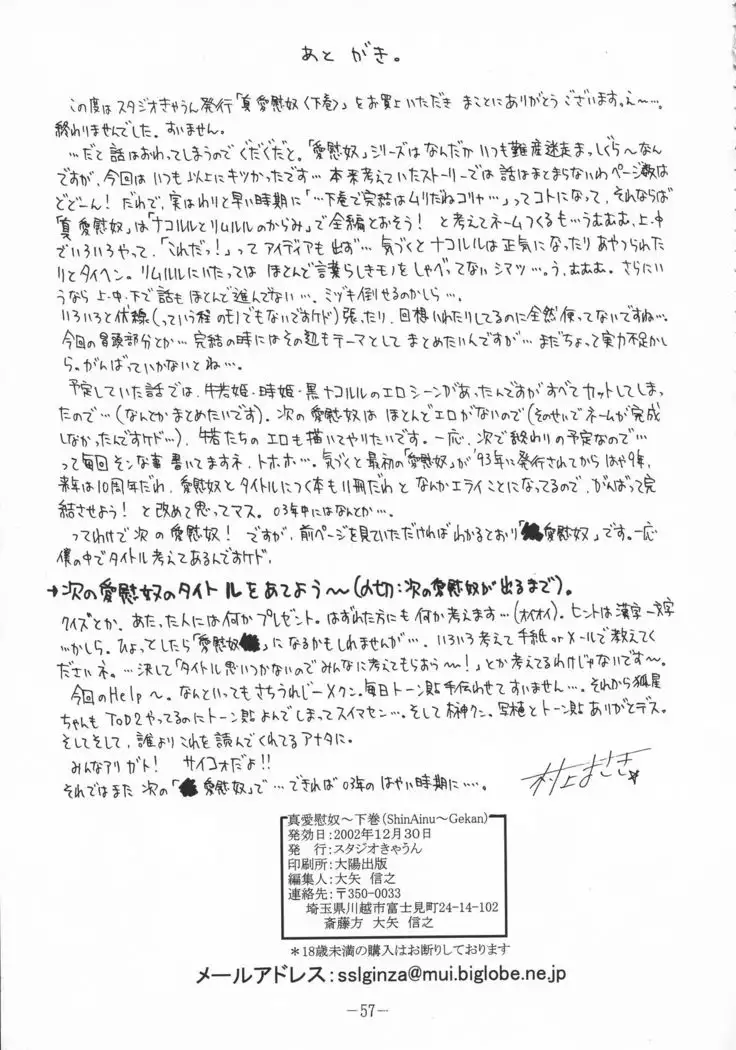 あと がき。
この度はスタジオきゃうん発行「真愛慰奴〈下巻〉」をお買上いただき まことにありがとう ございます。え〜…。
終わりませんでした。すいません。
…だと 話はおわってしまうので ぐだぐだと。「愛慰奴」シリーズはなんだか いつも難産迷走まっしぐら〜なん
ですが、今回は いつも以上にキツかったです… 本来考えていたストーリーでは 話はまとまらないわページ数は
どどーん! だわで、実はわりと早い時期に「…下巻で完結はムリだねコリャ…」ってコトになって、それならば
「真愛慰奴」は「ナコルルとリムルルのからみ」で全編とおそう! と考えてネームつくるも…うむむむ、上、中
でいろいろやって、「これだっ!」ってアイディアも出ず… 気づくとナコルルは正気になったりあやつられた
りとタイヘン。リムルルにいたっては ほとんど言葉らしきモノをしゃべってないシマツ…。う、むむむ。さらにい
うなら 上・中・下で話もほとんど進んでない…。ミヅキ倒せるのかしら…。
いろいろと伏線(っていう程のモノでもないですケド)張ったり、回想いれたりしてるのに全然使ってないですね…。
今回の冒頭部分とか… 完結の時にはその辺もテーマとして まとめたいんですが… まだちょって実力不足かし
ら。がんばっていかないとね…。
予定していた話では、牛若姫・時姫・黒ナコルルのエロシーンがあったんですがすべてカットしてしまっ
たので…(なんとかまとめたいです)。次の愛慰奴は ほとんどエロがないので(そのせいでネームが完成
しなかったんですケド…)、牛若たちの エロも描いてやりたいです。一応、次で終わりの予定なので…
って毎回そンな事 書いてますネ、トホホ…。気づくと最初の「愛慰奴」が '93年に発行されてから はや9年、
来年は10周年だわ、愛慰奴とタイトルにつく本も11冊だわ と なんかエライことになってるので、がんばって完
結させよう! と改めて思ってマス。03年中にはなんとか…。
ってわけで 次の 愛慰奴! ですが、前ページを見ていただければ わかるとおり「愛慰奴」です。一応
僕の中でタイトル考えてあるんですケド、
→次の愛慰奴のタイトルをあてよう〜(〆切:次の愛慰奴が出るまで)。
クイズとか、あたった人には何かプレゼント。はずれた方にも 何か考えます…(オイオイ)。ヒントは漢字一文字
…かしら。ひょっとしたら「愛慰奴」になるかもしれませんが…、いろいろ考えて 手紙orメールで教えてく
ださいネ。…決して「タイトル思いつかないのでみんなに考えてもらおう〜!」とか考えてるわけじゃないです〜。
今回のHelp〜。なんといっても さちうれじーメクン。毎日トーン貼手伝わせて すいません…。それから 狐星
ちゃんも TOD2やってるのにトーン貼 よんでしまってスイマセン…。そして 榊クン。写植とトーン貼 ありがとデス。
そしてそして、誰よりこれを読んでくれてるアナタに。
みんなアリガト! サイコォだよ!!
それではまた 次の「愛慰奴」で…できれば 03年のはやい時期に…。
村上まさき
真愛慰奴〜下巻(ShinAinu〜Gekan)
発効日:2002年12月30日
発 行:スタジオきゃうん
印刷所:大陽出版
編集人:大矢 信之
連絡先:〒350-0033
埼玉県川越市富士見町24-14-102
斎藤方 大矢 信之
*18歳未満の購入はお断りしております
メールアドレス:sslginza@mui.biglobe.ne.jp
―57―